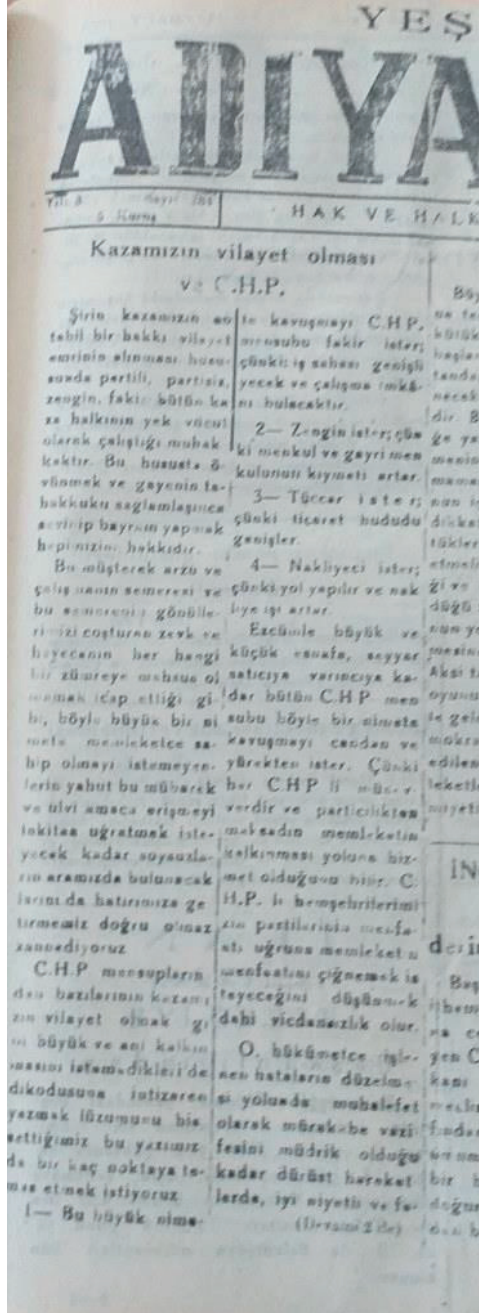 YEŞ
ADIYA
5 Kuruş
HAK VE HALK
Kazamızın vilayet olması
ve C.H.P.
Şirin kazamızın en
tabii bir hakkı vilayet
emrinin alınması husu-
sunda partili, partisiz,
zengin, fakir bütün ka
za halkının yek vücut
olarak çalıştığı muhak
kaktır. Bu hususta ö-
vünmek ve gayenin ta-
hakkuku sağlamlaşınca
sevinip bayram yapmak
hepimizin hakkıdır.
Bu müşterek arzu ve
çalışmanın semeresi ve
bu semerenin gönülle-
rimizi coşturan zevk ve
heyecanın her hangi
bir zümreye mahsus ol
mamak icap ettiği gi-
bi, böyle büyük bir ni
mete memleketce sa-
hip olmayı istemeyen-
lerin yahut bu mübarek
ve ulvi amaca erişmeyi
inkıtaa uğratmak iste-
yecek kadar soysuzla-
rın aramızda bulunacak
larını da hatırımıza ge
tirmemiz doğru olmaz
zannediyoruz
C.H.P mensupların
dan bazılarının kazamı
zın vilayet olmak gi
bi büyük ve ani kalkın
masını istemedikleri de
dikodusuna intizaren
yazmak lüzumunu his
settiğimiz bu yazımız
da bir kaç noktaya te-
mas etmek istiyoruz
1— Bu büyük nime-
te kavuşmayı C.H.P.
mensubu fakir ister;
çünki iş sahası genişli
yecek ve çalışma imkâ-
nı bulacaktır.
2— Zengin ister; çün
ki menkul ve gayri men
kulunun kıymeti artar.
3— Tüccar ister;
çünki ticaret hududu
genişler.
4— Nakliyeci ister;
çünki yol yapılır ve nak
liye işi artar.
Ezcümle büyük ve
küçük esnafa, seyyar
satıcıya varıncıya ka-
dar bütün C.H.P men
subu böyle bir nimete
kavuşmayı candan ve
yürekten ister. Çünki
her C.H.P li
verdir ve particilikten
maksadın memleketin
kalkınması yoluna hiz-
met olduğunu bilir. C.
H.P. li hemşehrilerimi
zin partilerinin menfa-
atı uğruna memleketin
menfaatini çiğnemek is
teyeceğini düşünmek
dahi vicdansızlık olur.
O, hükûmetce işle-
nen hataların düzelme-
si yolunda muhalefet
olarak mürakebe vazi
fesini müdrik olduğu
kadar dürüst hareket
lerde, iyi niyetli ve fe-
(Devamı 2 de)